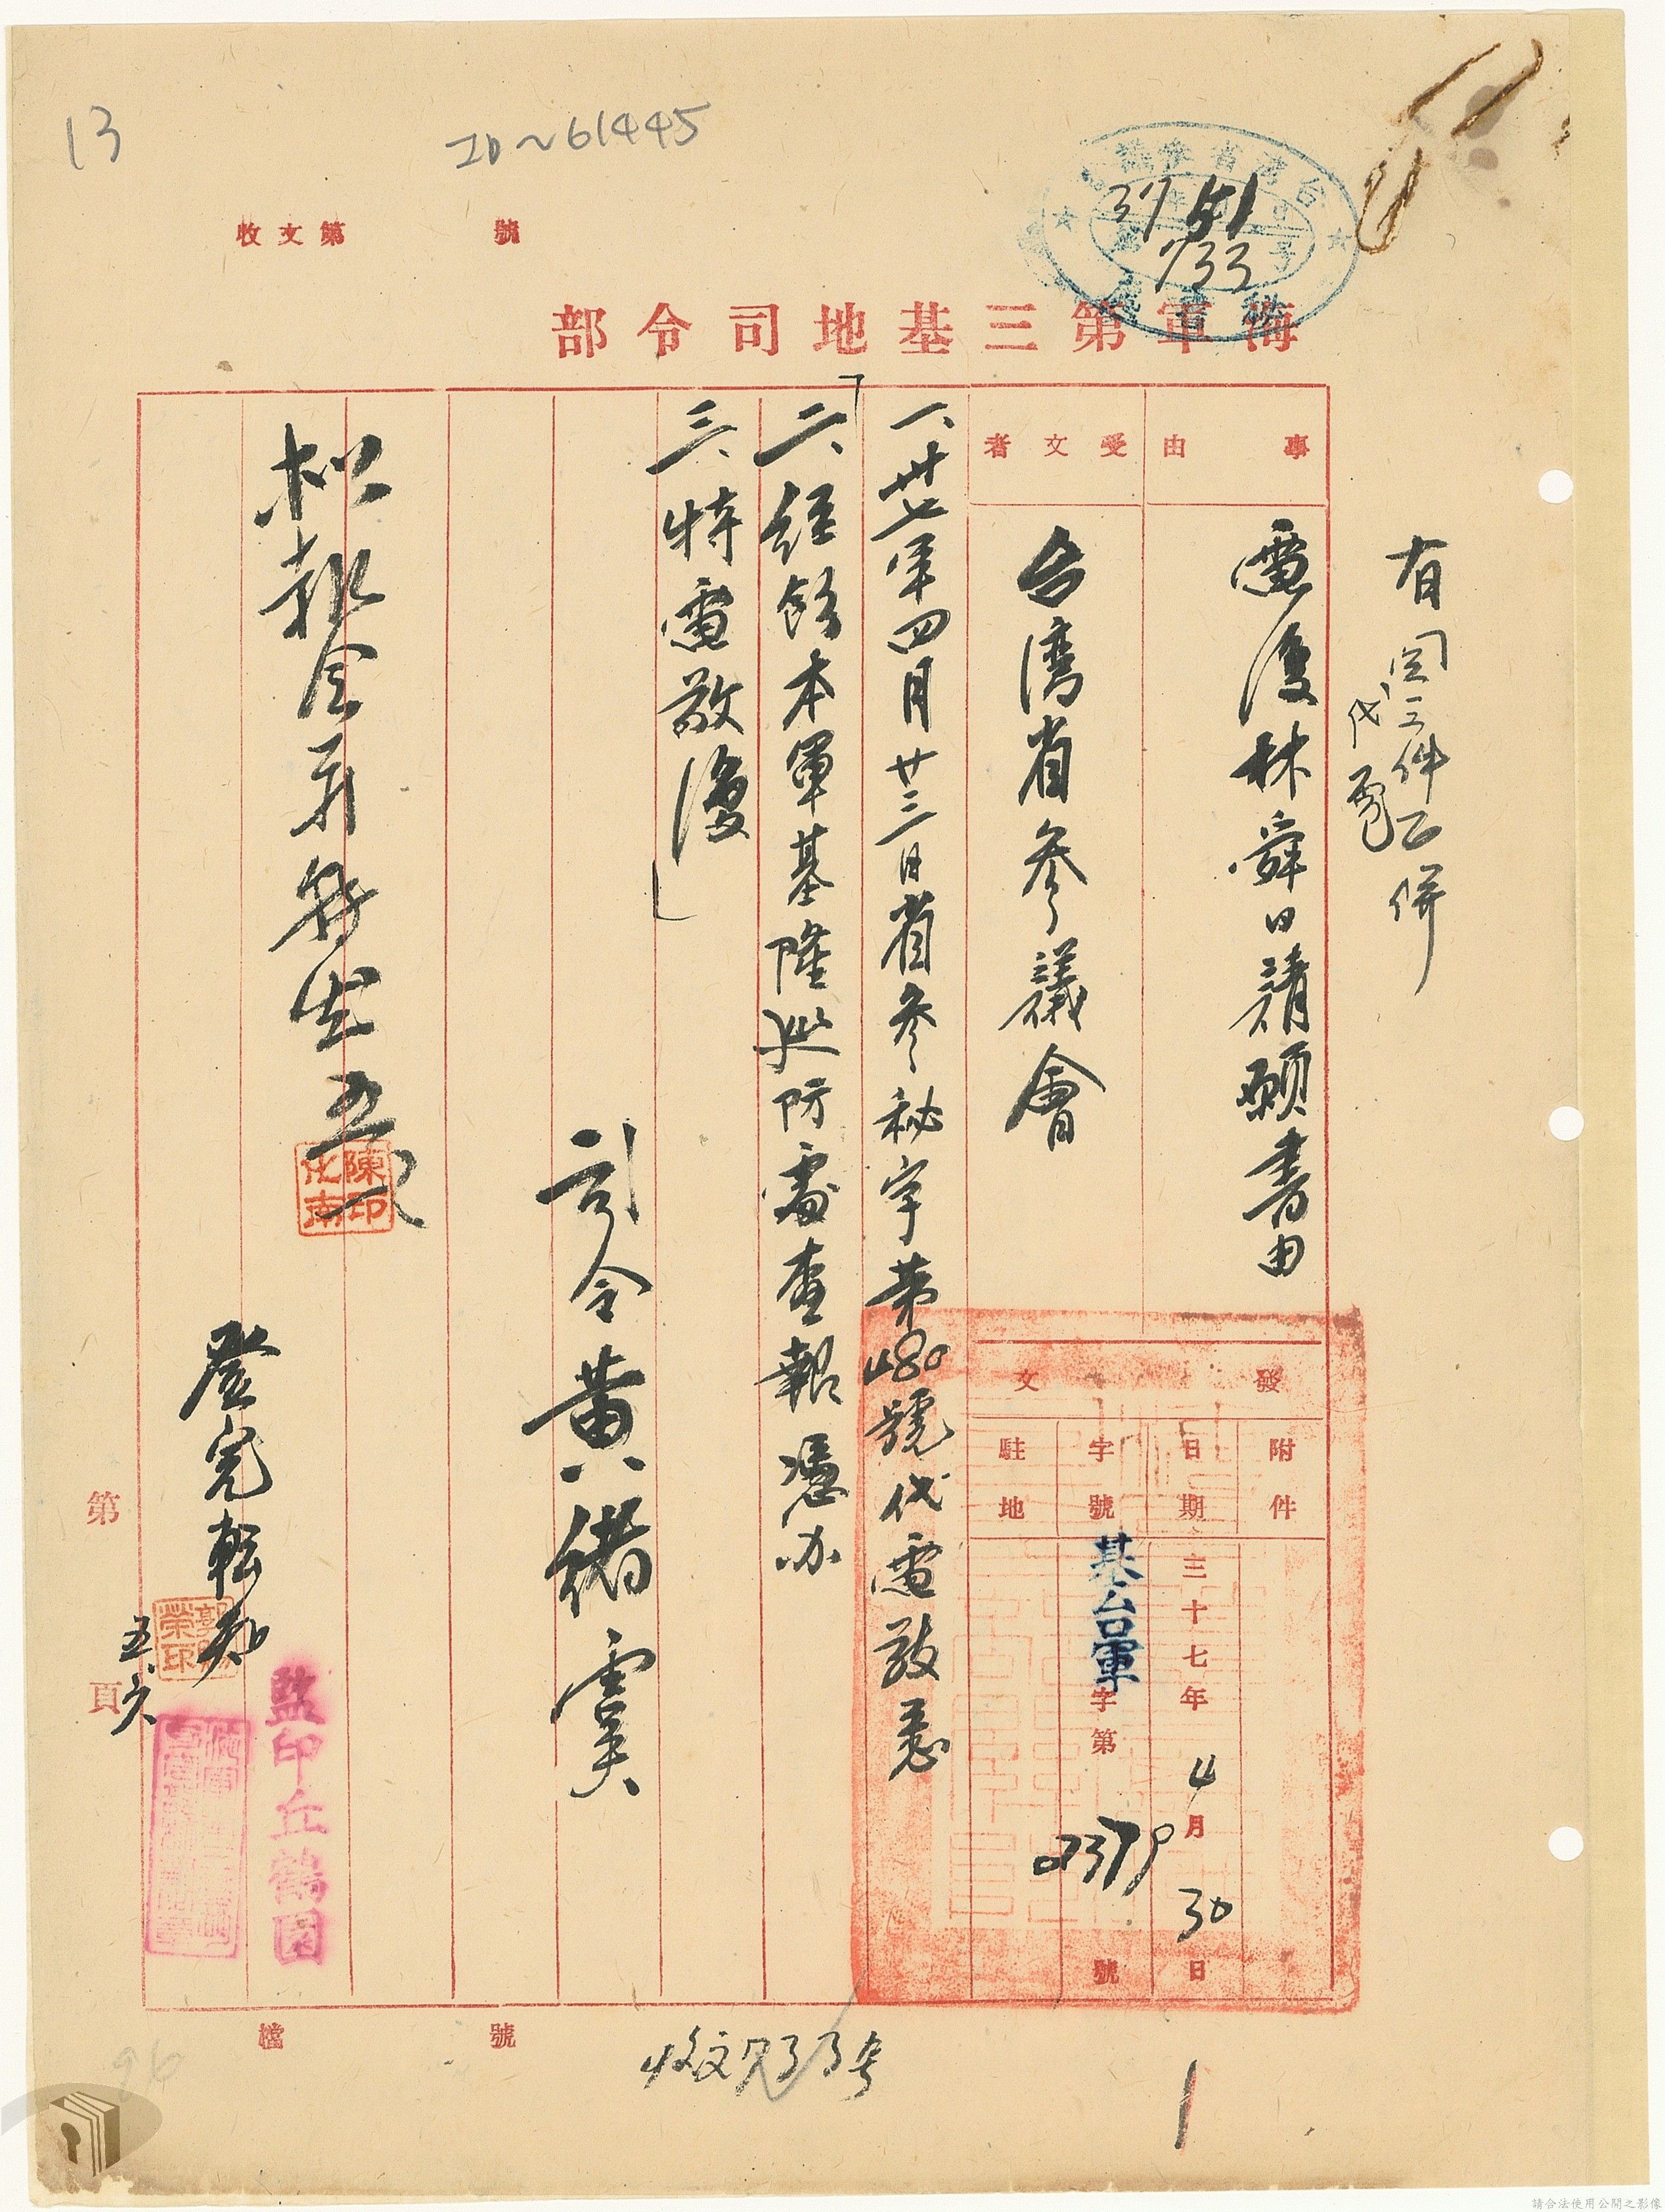 13
ID~61445
收文第 號
37 5/1
733
海軍第三基地司令部
有關三件已併
代電
事由
電復林舜日請願書由
受文者
台灣省參議會
發文
附件
日期
三十七年4月30日
字號
基台軍字第0379號
駐地
一、卅七年四月廿三日省參秘字第480號代電敬悉
二、經飭本軍基隆巡防處查報憑办
三、特電敬復
司令黃緒虞
陳印化南
登完転知
五、六
監印丘鶴園
第 頁
檔 號
收文733号
請合法使用公開之影像